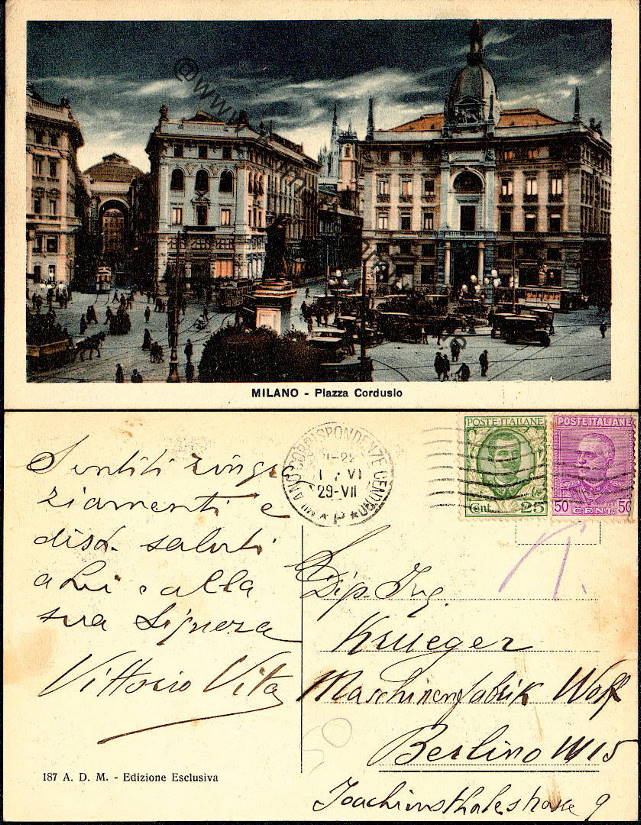 @www.
MILANO - Piazza Cordusio
MILANO CORRISPONDENZE CENTRO
29-VII
* P *
POSTE ITALIANE
Cent. 25
POSTE ITALIANE
50 CENT. 50
Sentiti ringra
ziamenti e
dist. saluti
a Lei e alla
sua Signora
Vittorio Vita
Dip. Ing.
Krueger
Maschinenfabrik Wolf
Berlino W15
Joachimsthalestrasse 9
50
187 A. D. M. - Edizione Esclusiva